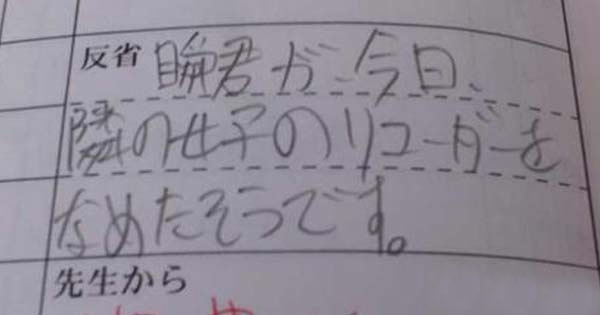 反省 瞬君が今日、
隣の女子のリコーダーを
なめたそうです。
先生から